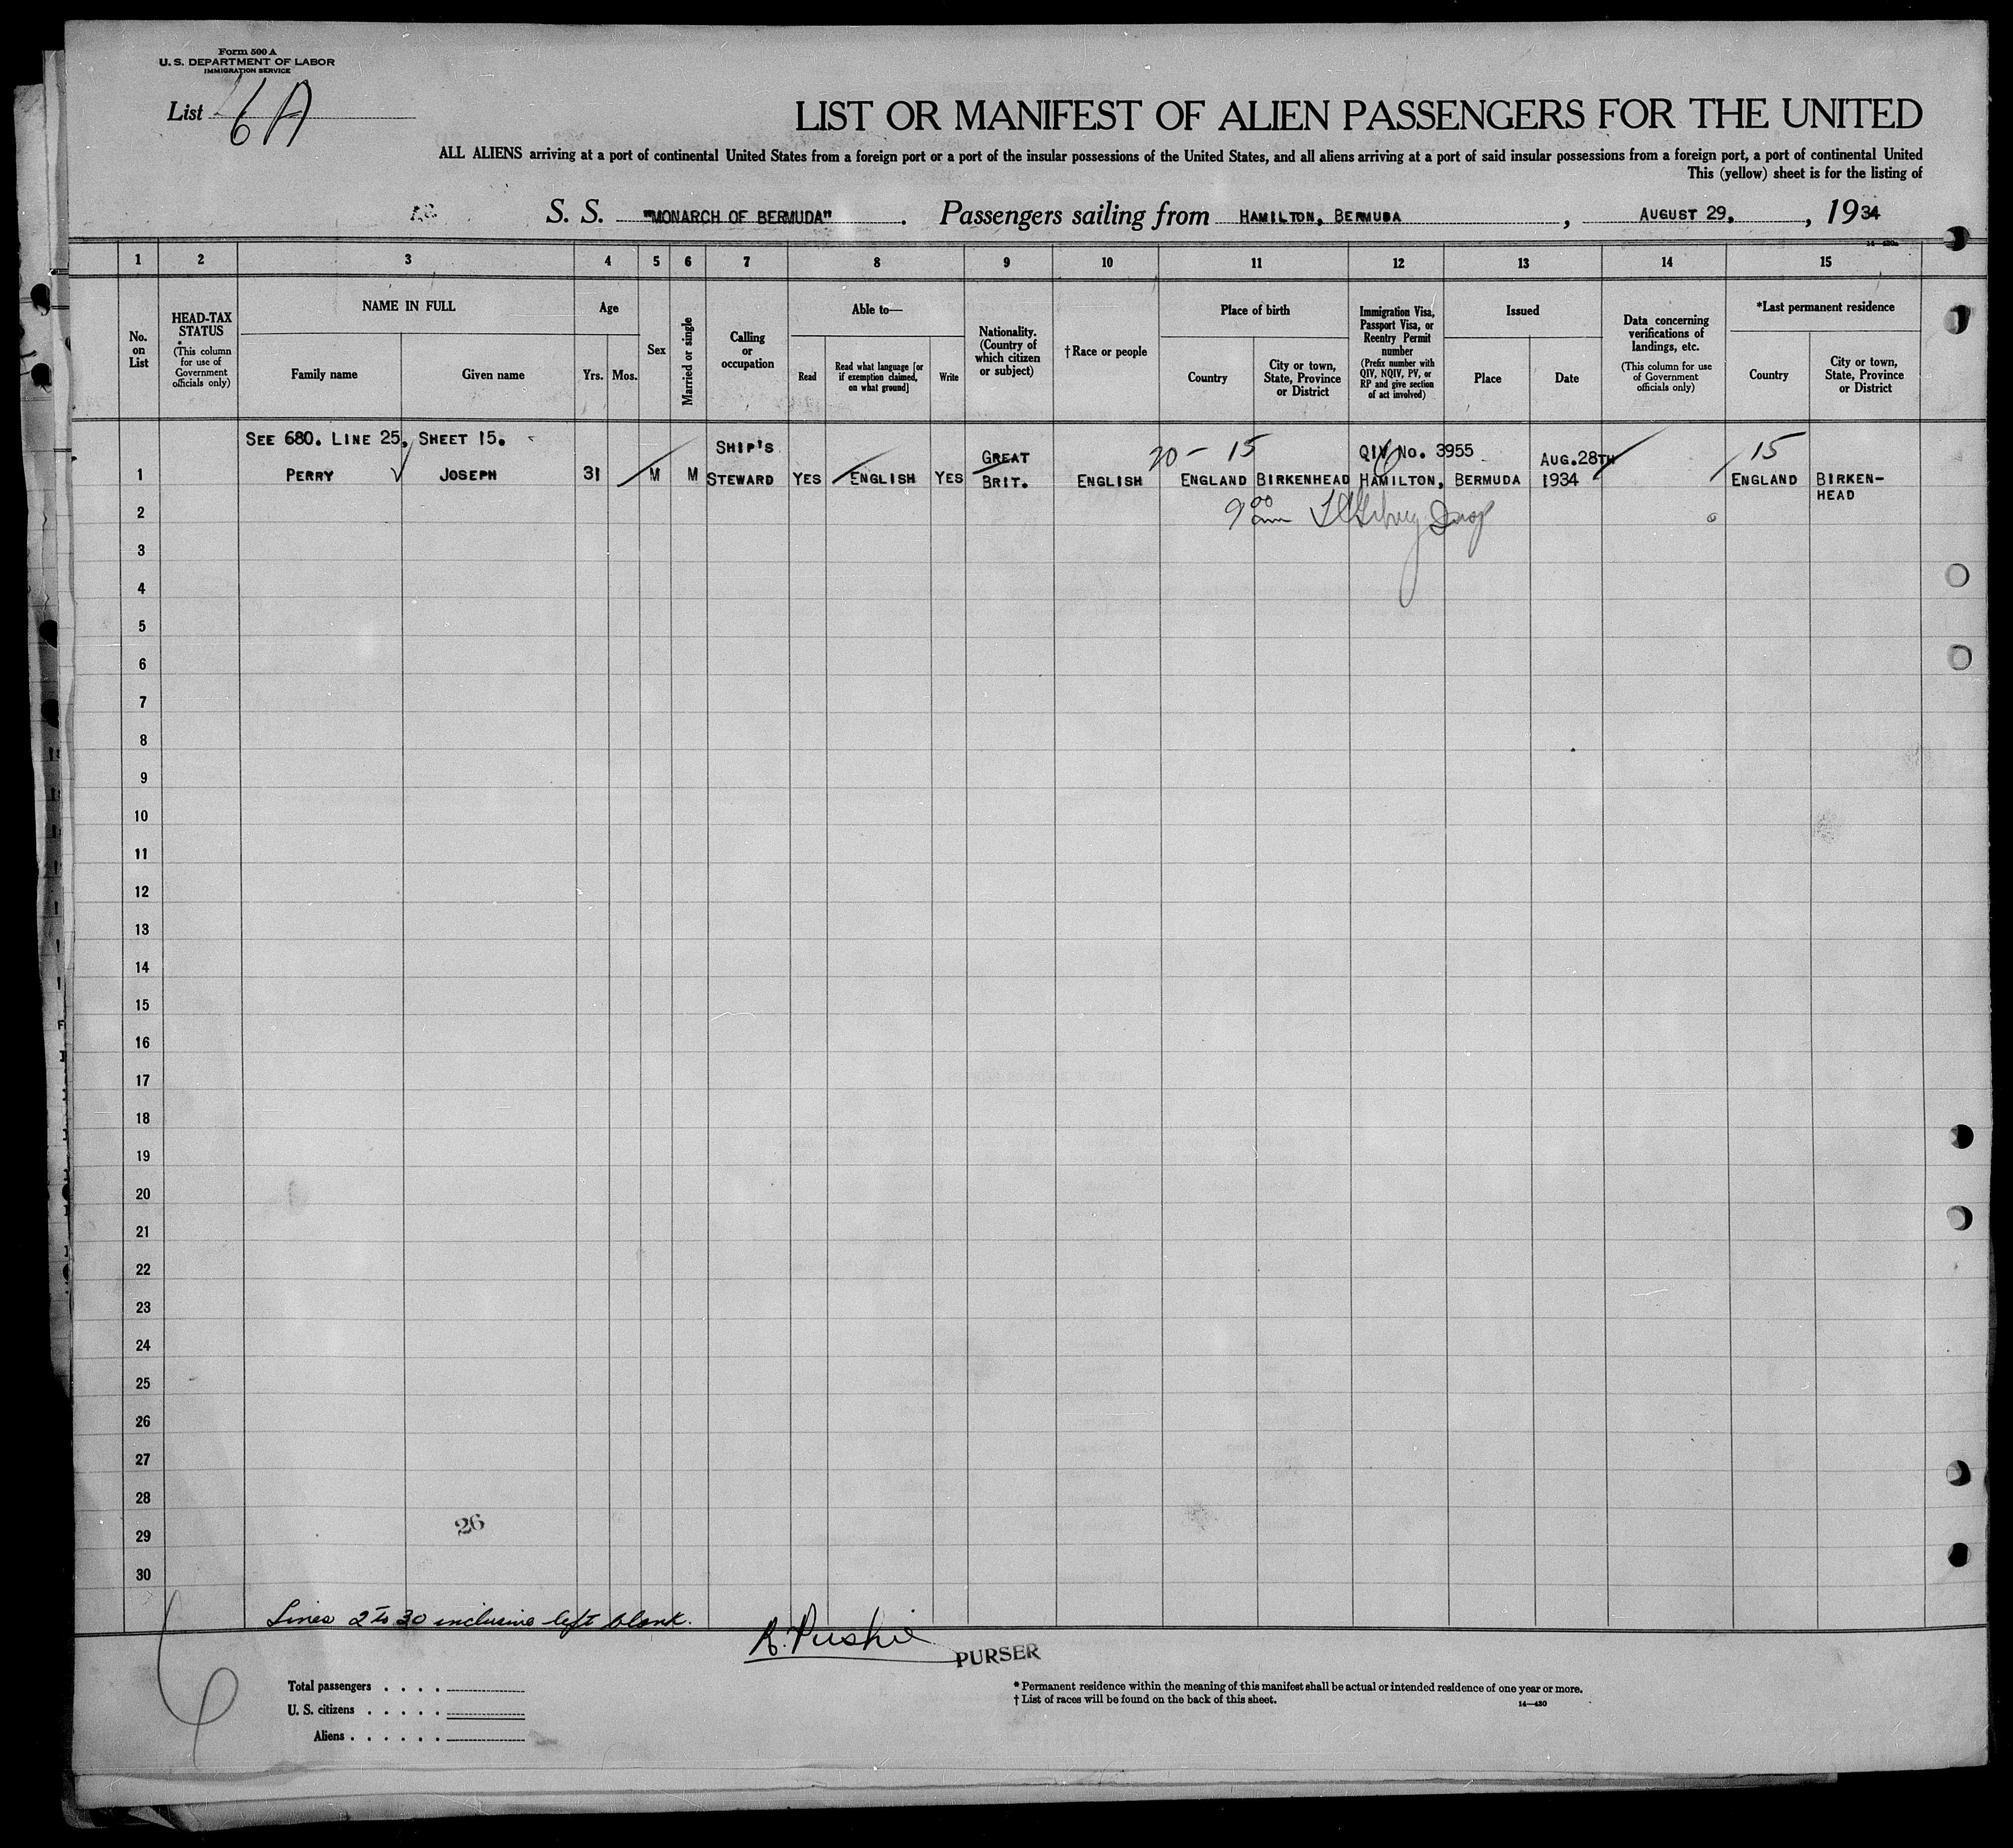 Form 500 A
U. S. DEPARTMENT OF LABOR
IMMIGRATION SERVICE
List 6A
LIST OR MANIFEST OF ALIEN PASSENGERS FOR THE UNITED
ALL ALIENS arriving at a port of continental United States from a foreign port or a port of the insular possessions of the United States, and all aliens arriving at a port of said insular possessions from a foreign port, a port of continental United
This (yellow) sheet is for the listing of
S. S. "MONARCH OF BERMUDA". Passengers sailing from HAMILTON, BERMUDA, AUGUST 29, , 1934
1 2 3 4 5 6 7 8 9 10 11 12 13 14 15
No. on List
HEAD-TAX STATUS
(This column for use of Government officials only)
NAME IN FULL
Family name
Given name
Age
Yrs. Mos.
Sex
Married or single
Calling or occupation
Able to—
Read
Read what language [or if exemption claimed, on what ground]
Write
Nationality. (Country of which citizen or subject)
†Race or people
Place of birth
Country
City or town, State, Province or District
Immigration Visa, Passport Visa, or Reentry Permit number
(Prefix number with QIV, NQIV, PV, or RP and give section of act involved)
Issued
Place
Date
Data concerning verifications of landings, etc.
(This column for use of Government officials only)
*Last permanent residence
Country
City or town, State, Province or District
SEE 680. LINE 25, SHEET 15.
SHIP'S GREAT 20-15 QIV No. 3955 AUG.28TH 15
1 PERRY JOSEPH 31 M M STEWARD YES ENGLISH YES BRIT. ENGLISH ENGLAND BIRKENHEAD HAMILTON, BERMUDA 1934 ENGLAND BIRKEN-
HEAD
2 9 00 am
3
4
5
6
7
8
9
10
11
12
13
14
15
16
17
18
19
20
21
22
23
24
25
26
27
28
29 26
30
Lines 2 to 30 inclusive left blank.
PURSER
Total passengers . . . .
U. S. citizens . . . . .
Aliens . . . . . .
* Permanent residence within the meaning of this manifest shall be actual or intended residence of one year or more.
† List of races will be found on the back of this sheet.
14—430